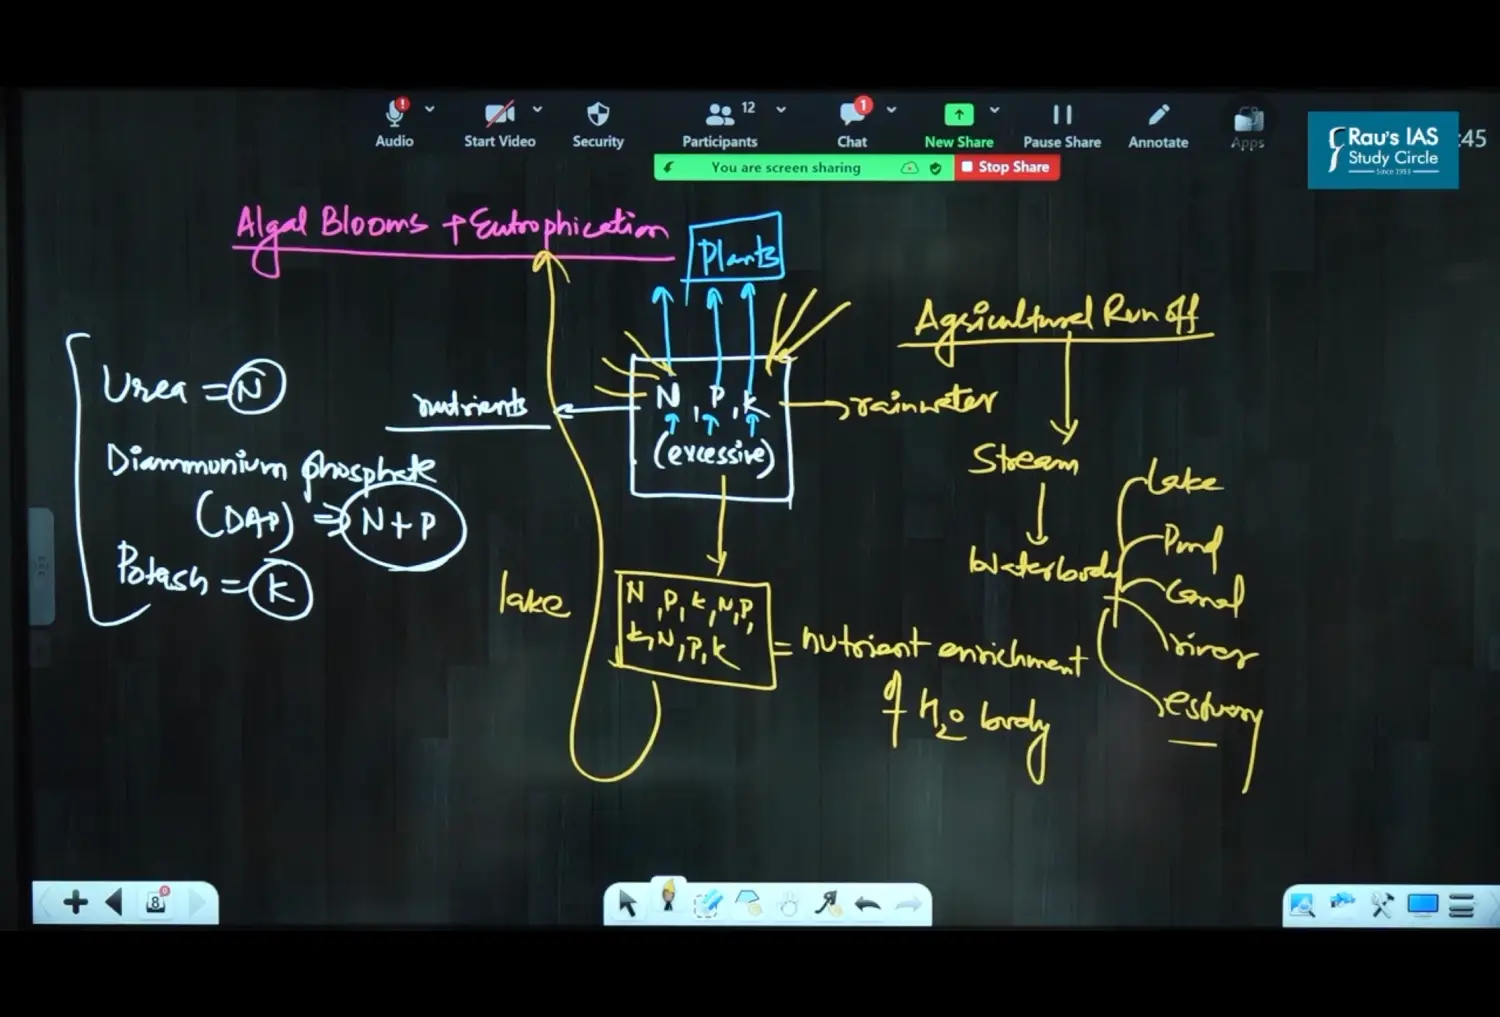 Audio
Start Video
Security
Participants
12
Chat
1
New Share
Pause Share
Annotate
Apps
You are screen sharing
Stop Share
Rau's IAS
Study Circle
Since 1953
:45
Algal Blooms + Eutrophication
Plants
Agricultural Run off
Urea = N
nutrients
N, P, K
(excessive)
rainwater
Diammonium phosphate
(DAP) ⇒ N+P
Potash = K
Stream
Waterbody
Lake
Pond
Canal
river
estuary
lake
N, P, K, N, P,
K, N, P, K
= nutrient enrichment
of H₂O body
8
0